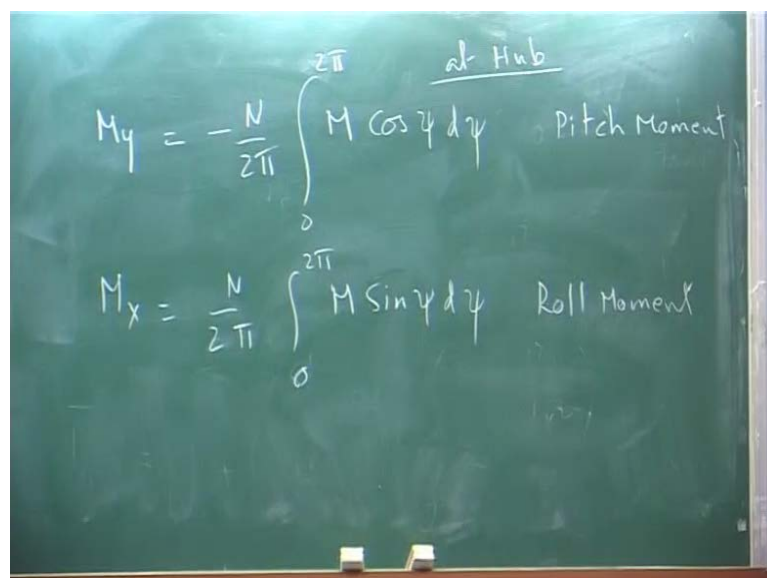 at Hub
My = - N/2π ∫₀^2π M cos ψ dψ Pitch Moment
Mx = N/2π ∫₀^2π M Sin ψ dψ Roll Moment